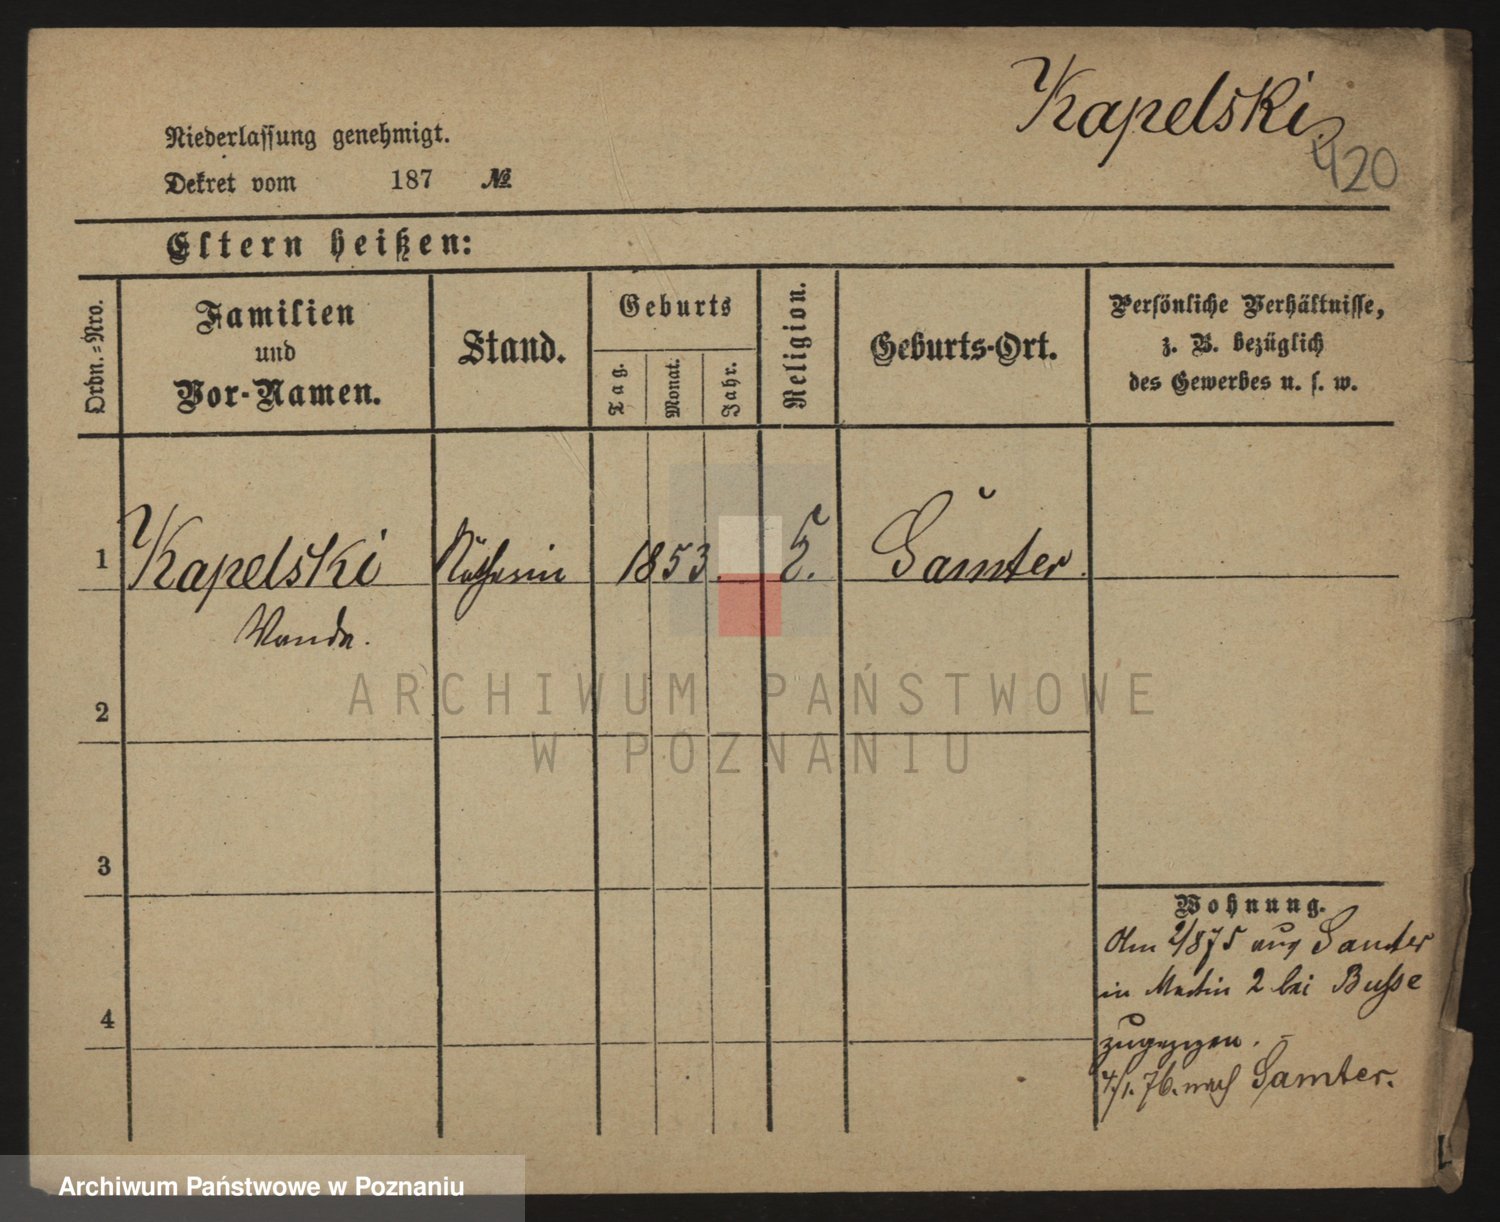 Kapelski.
420
Niederlassung genehmigt.
Dekret vom 187 №
Eltern heißen:
Ordn.=Nro.
Familien
und
Vor-Namen.
Stand.
Geburts
Tag.
Monat.
Jahr.
Religion.
Geburts-Ort.
Persönliche Verhältnisse,
z. B. bezüglich
des Gewerbes u. s. w.
1 Kapelski 1853. Samter.
Wanda.
2
3
4
Wohnung.
2/875 aus Samter
in Martin 2 bei Busse
zugezogen.
4/1. 76. nach Samter.
ARCHIWUM PAŃSTWOWE
W POZNANIU
Archiwum Państwowe w Poznaniu